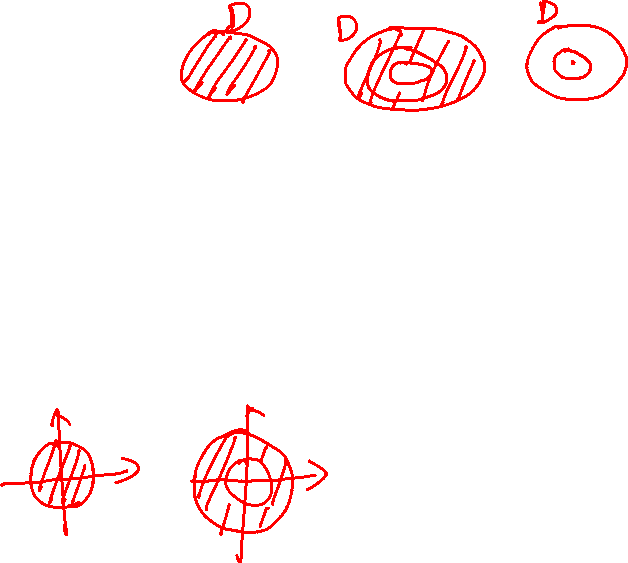 D D D